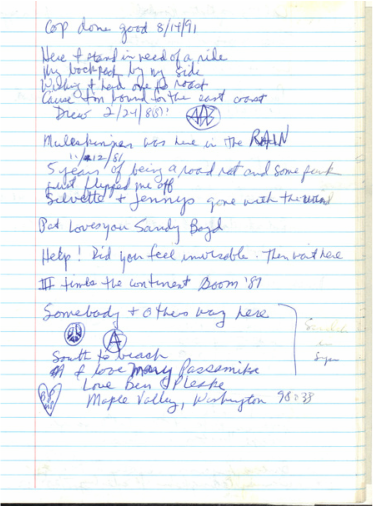 Cop done good 8/14/91
Here I stand in need of a ride
My backpack by my side
Wishing I had one to roast
Cause I'm bound for the east coast
Drew 2/24/88!
Muleskinner was here in the RAIN
11/12/81
5 years of being a road rat and some
just flipped me off
& Jennys gone with the wind
Pat Loves you Sandy Boyd
Help! Did you feel invisable. Then wait here
III times the continent Doom '87
Somebody + others way here
A
South to beach
I love Mary Passamike
Love Ben Pleake
Maple Valley, Washington 98038